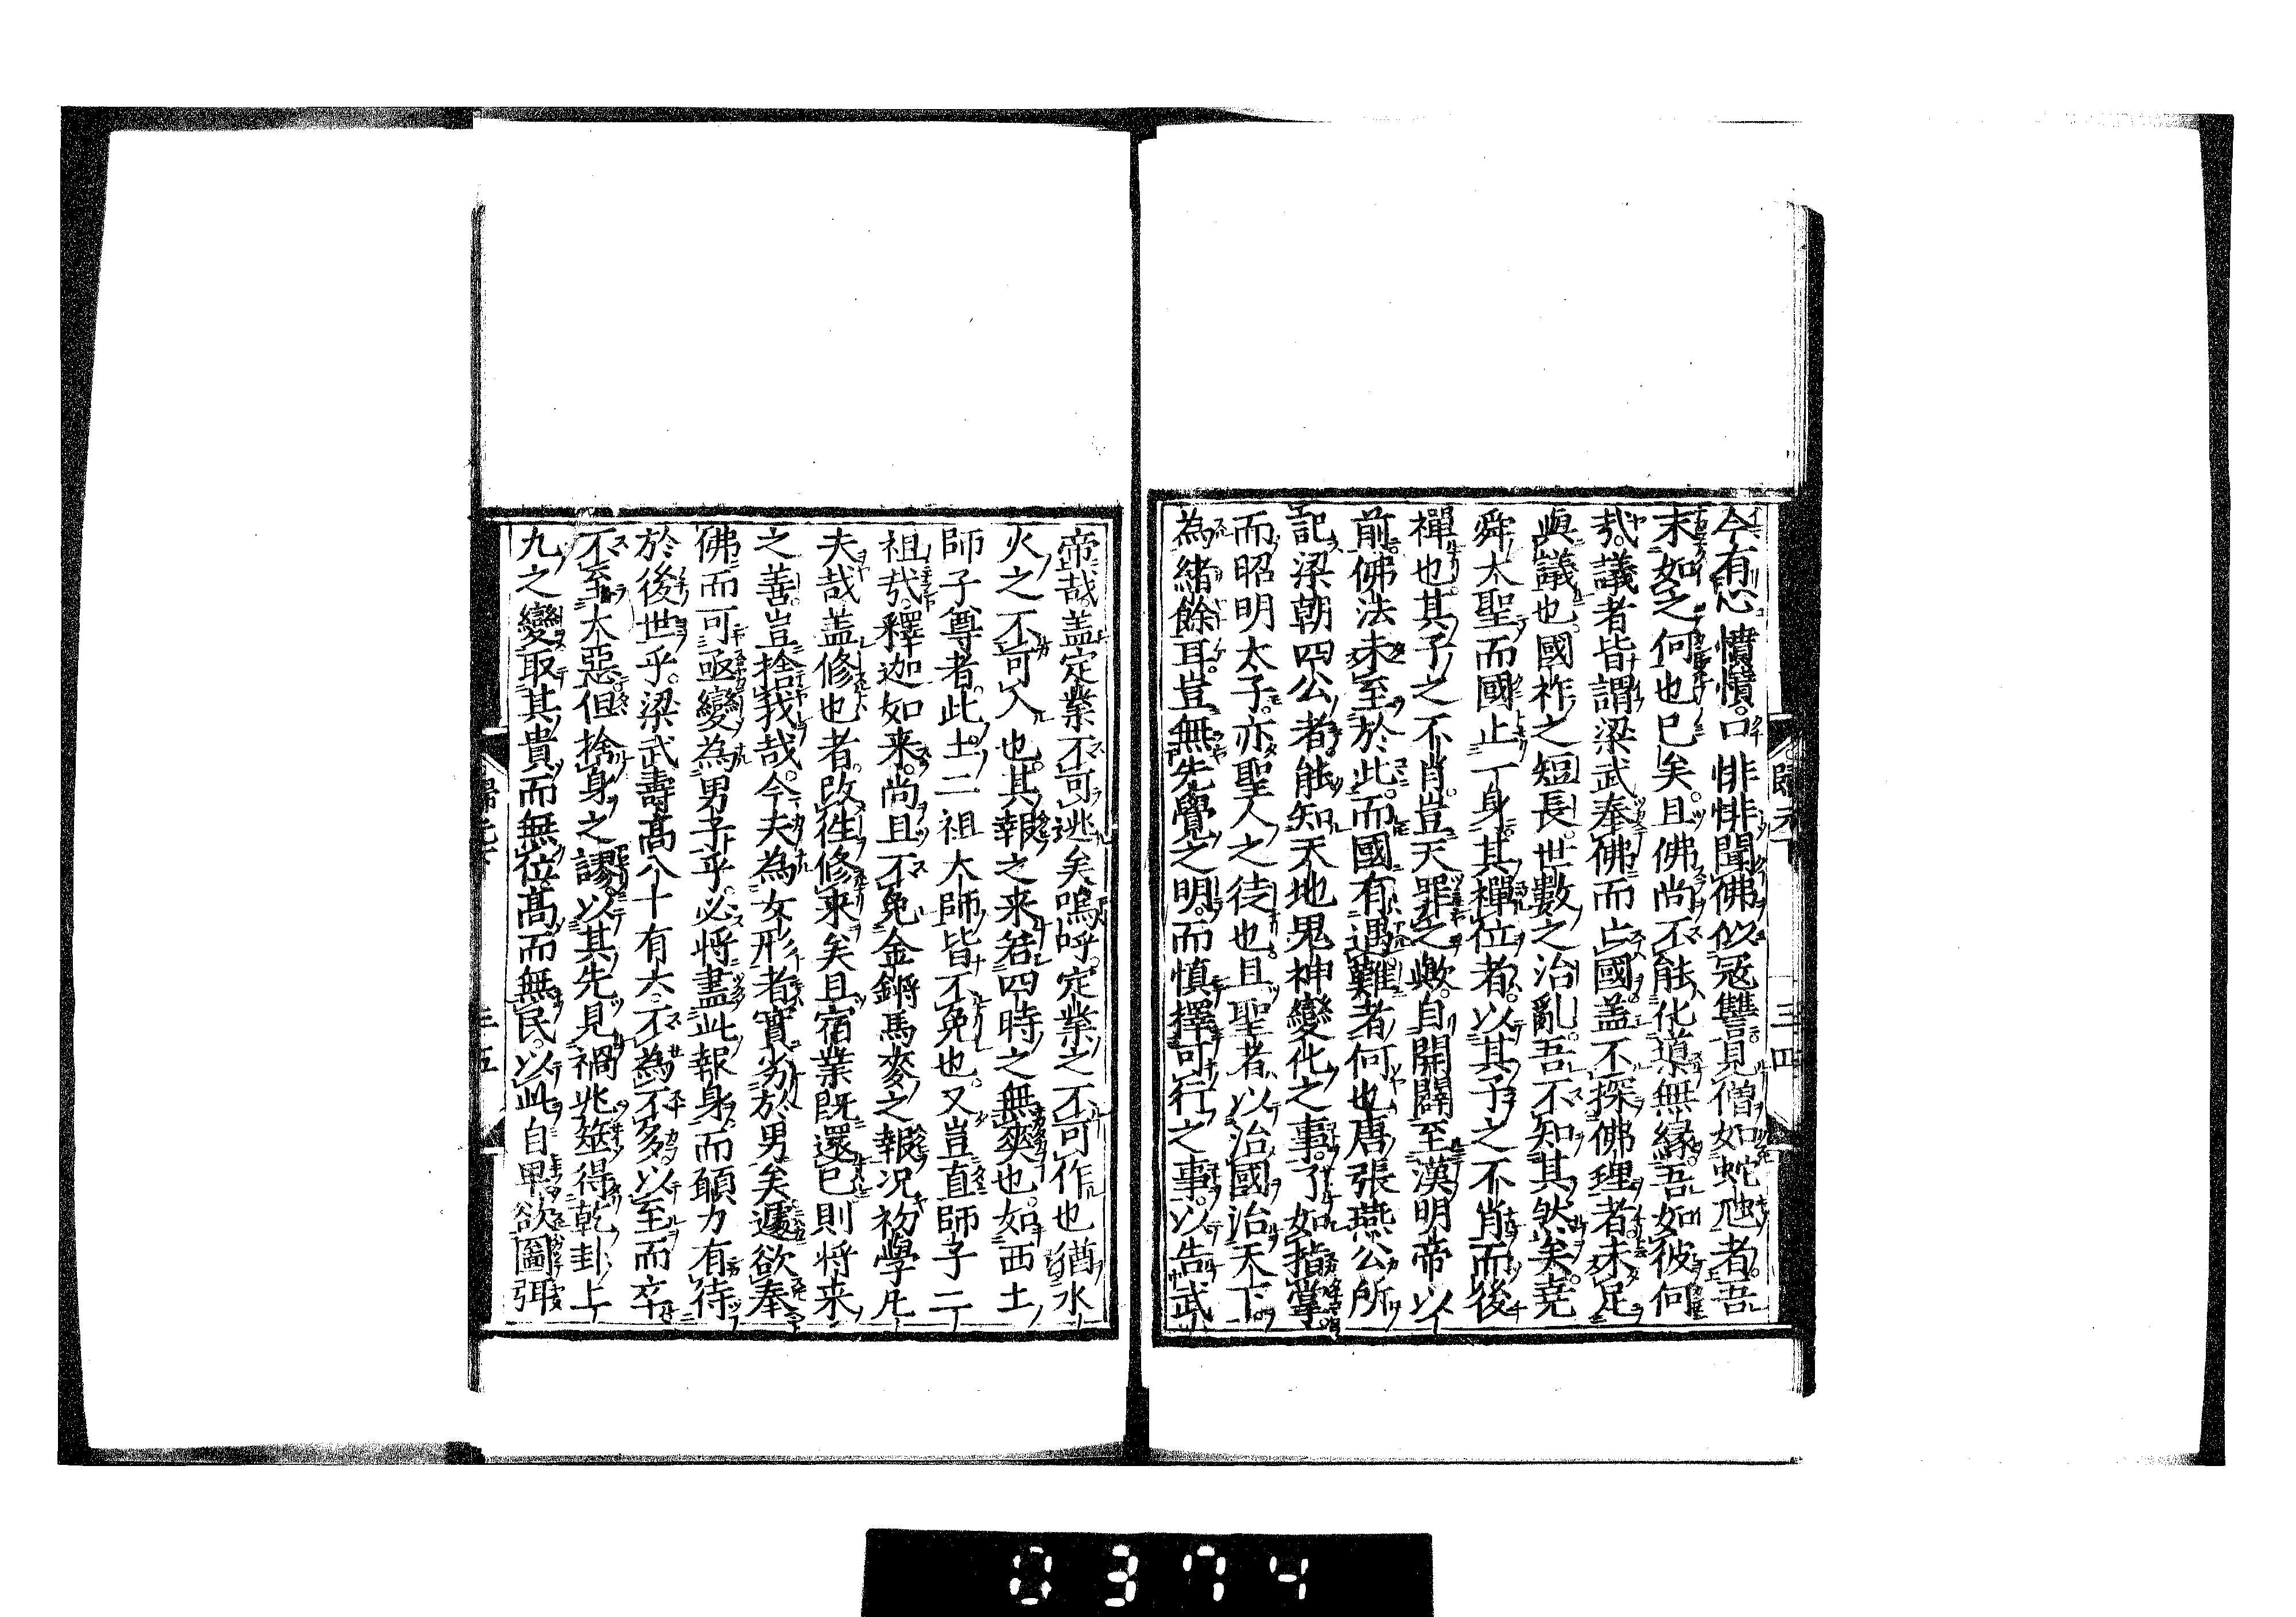 今有心憤憤口悱悱聞佛似冦讐見僧如蛇虺者吾
末如之何也已矣且佛尚不能化導無縁吾如彼何
㢤議者皆謂梁武奉佛而亡國盖不探佛理者未足
與議也國祚之短長世數之治亂吾不知其然矣堯
舜大聖而國止一身其禪位者以其子之不肖而後
禪也其子之不肖豈天罪之歟自開闢至漢明帝以
前佛法未至於此而國有遇難者何也唐張燕公所
記梁朝四公者能知天地鬼神變化之事了如指掌
而昭明太子亦聖人之徒也且聖者以治國治天下
為緒餘耳豈無先覺之明而慎擇可行之事以告武
帝哉盖定業不可逃矣嗚呼定業之不可作也猶水
火之不可入也其報之来若四時之無爽也如西土
師子尊者此土二祖大師皆不免也又豈直師子二
祖㢤釋迦如来尚且不免金鏘馬麥之報况初學凡
夫哉盖修也者改徃修来矣且宿業既還已則将来
之善豈捨我哉今夫為女形者實劣於男矣遽欲奉
佛而可亟變為男子乎必将盡此報身而願力有待
於後世乎梁武壽髙八十有六不為不多以至而卒
不至大惡但捨身之謬以其先見禍兆筮得乾卦上
九之變取其貴而無位髙而無民以此自卑欲圖弭
歸元下 三四
三五
0374